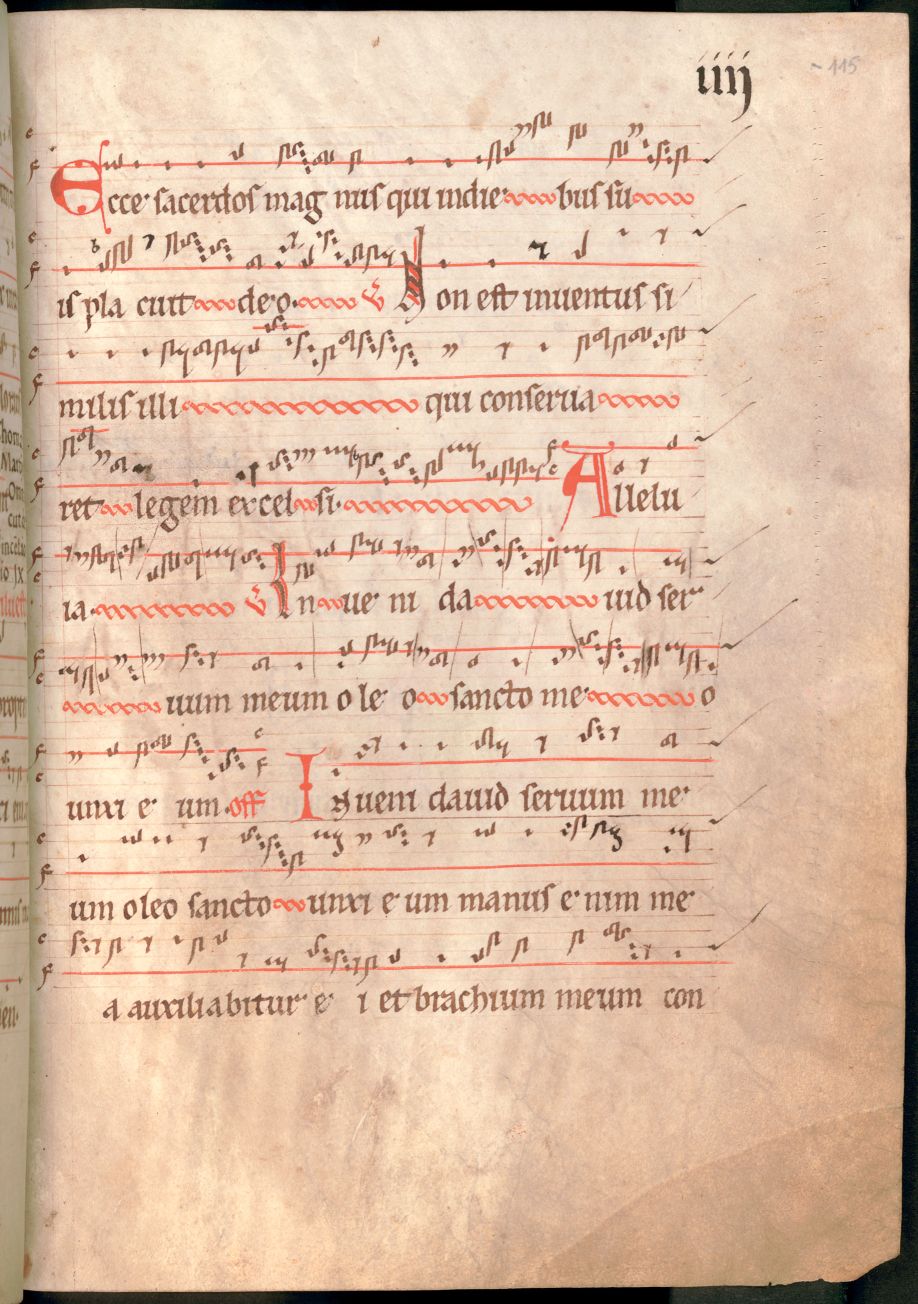 iiij
115
Ecce sacerdos mag nus qui in die bus su
is pla cuit deo. V Non est inuentus si
milis illi qui conserua
ret legem excel si. Allelu
ia. V Inue ni da uid ser
uum meum o le o sancto me o
unxi e um. off Inueni dauid seruum me
um oleo sancto unxi e um manus e nim me
a auxiliabitur e i et brachium meum con